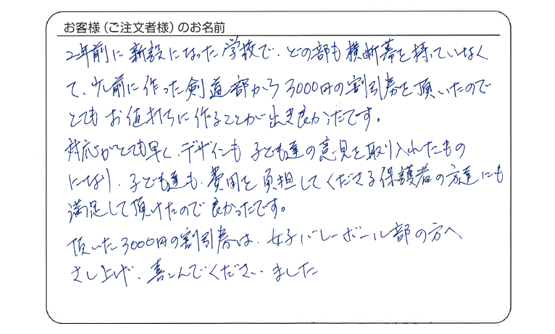 お客様（ご注文者様）のお名前
2年前に新設になった学校で、どの部も横断幕を持っていなく
て、少し前に作った剣道部から3000円の割引券を頂いたので
とてもお値打ちに作ることが出き良かったです。
対応がとても早く、デザインも子ども達の意見を取り入れたもの
になり、子ども達も、費用を負担してくださる保護者の方達にも
満足して頂けたので良かったです。
頂いた3000円の割引券は、女子バレーボール部の方へ
さし上げ、喜こんでくださいました